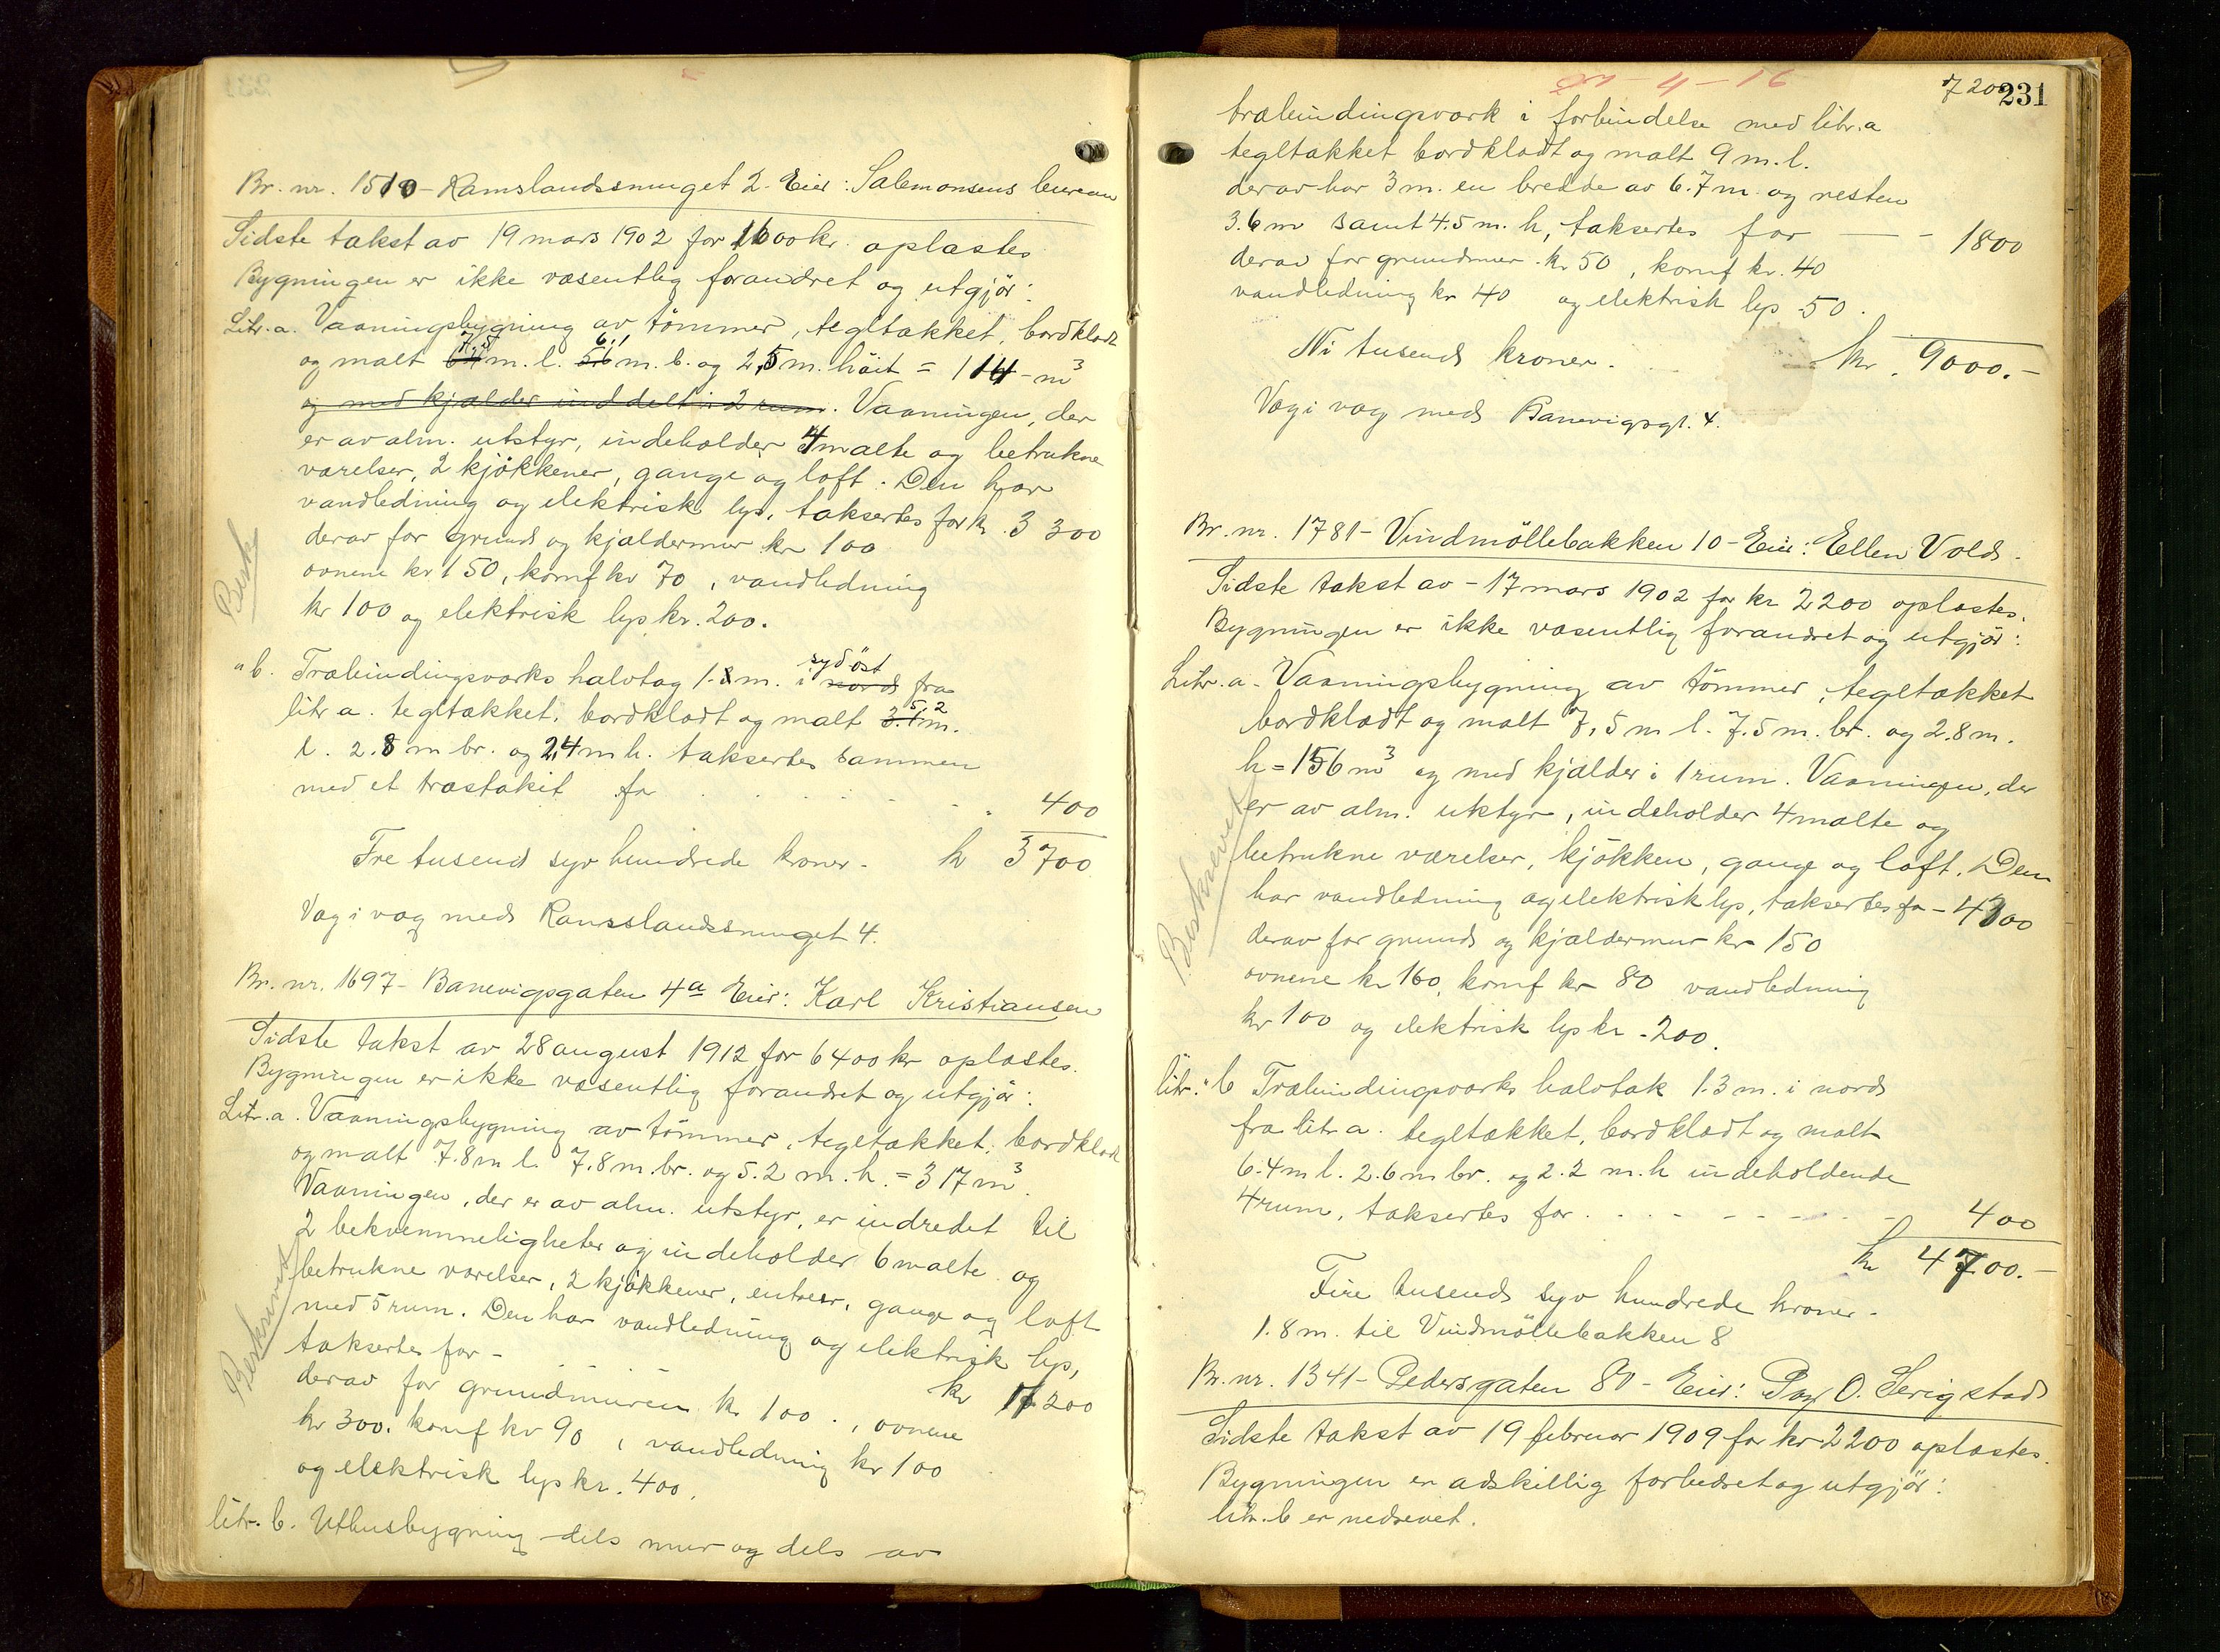 Br. nr. 1510 - Ramslandssmuget 2 - Eier: Salomonsens bureau
Sidste takst av 19 mars 1902 for 1600 kr. oplæstes.
Bygningen er ikke væsentlig forandret og utgjör:
Litr. a. Vaaningsbygning av tömmer, tegltækket, bordklædt
og malt 7.5 m. l. 6.1 m. b. og 2,5 m. höit = 114 - m³
og med kjælder inddelt i 2 rum. Vaaningen, der
er av alm. utstyr, indeholder 4 malte og betrukne
værelser, 2 kjökkener, gange og loft. Den har
vandledning og elektrisk lys, taksertes for kr. 3 300
derav for grund og kjældermur kr 100
ovnene kr 150, komf kr 70, vandledning
kr 100 og elektrisk lys kr. 200.
Besk
" b. Træbindingsværks halvtag 1.8 m. i nord sydöst fra
litr a. tegltækket, bordklædt og malt 5,2 m.
l. 2.8 m br. og 2,4 m h. taksertes sammen
med et træstakit for - 400
Tre tusend syv hundrede kroner - kr 3700
Væg i væg med Ramslandssmuget 4.
Br. nr. 1697 - Banevigsgaten 4a Eier: Karl Kristiansen
Sidste takst av 28 august 1912 for 6400 kr oplæstes.
Bygningen er ikke væsentlig forandret og utgjör:
Litr. a. Vaaningsbygning av tömmer, tegltækket, bordklædt
og malt 7.8 m l. 7.8 m. br. og 5.2 m. h. = 317 m³.
Vaaningen, der er av alm. utstyr, er indredet til
2 bekvemmeligheter og indeholder 6 malte og
betrukne værelser, 2 kjökkener, entreer, gange og loft
med 5 rum. Den har vandledning og elektrisk lys,
taksertes for - kr 7 200
Beskrevet
derav for grundmuren kr 100., ovnene
kr 300, komf kr 90, vandledning kr 100
og elektrisk lys kr. 400.
litr. b. Uthusbygning dels mur og dels av
7 200
231
træbindingsværk i forbindelse med litr. a
tegltækket bordklædt og malt 9 m. l.
derav har 3 m. en bredde av 6.7 m. og resten
3.6 m samt 4.5 m. h, taksertes for - 1800
derav for grundmur kr 50, komf kr. 40
vandledning kr 40 og elektrisk lys 50.
Ni tusend kroner. kr. 9000.-
Væg i væg med Banevigsgt. 4.
Br. nr. 1781 - Vindmöllebakken 10 - Eier: Ellen Vold.
Sidste takst av - 17 mars 1902 for kr 2200 oplæstes.
Bygningen er ikke væsentlig forandret og utgjör:
Litr. a. Vaaningsbygning av tömmer, tegltækket
bordklædt og malt 7,5 m l. 7.5 m. br. og 2.8 m.
h = 156 m³ og med kjælder i 1 rum. Vaaningen, der
er av alm. utstyr, indeholder 4 malte og
betrukne værelser, kjökken, gange og loft. Den
har vandledning og elektrisk lys, taksertes for - 4300
Beskrevet
derav for grund og kjældermur kr 150
ovnene kr 160, komf kr 80 vandledning
kr 100 og elektrisk lys kr - 200.
litr. " b Træbindingsværks halvtak 1.3 m. i nord
fra litr a. tegltækket, bordklædt og malt
6.4 m l. 2.6 m br. og 2.2 m. h indeholdende
4 rum, taksertes for - 400
kr 4700.-
Fire tusend syv hundrede kroner -
1.8 m. til Vindmöllebakken 8
Br. nr. 1341 - Pedersgaten 80 - Eier: O. Serigstad
Sidste takst av 19 februar 1909 for kr 2200 oplæstes.
Bygningen er adskillig forbedret og utgjör:
litr. b er nedrevet.